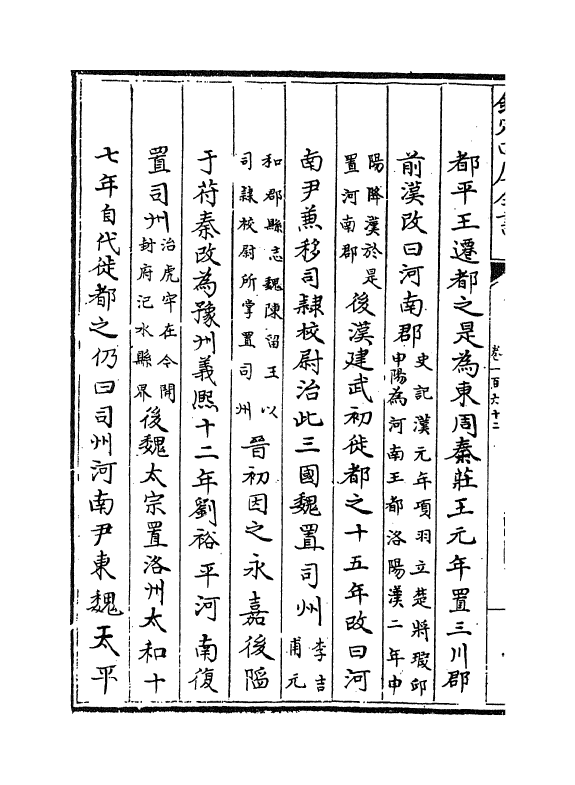 欽定四庫全書
卷一百六十二
都平王遷都之是為東周秦莊王元年置三川郡
前漢改曰河南郡史記漢元年項羽立楚將瑕邱申陽為河南王都洛陽漢二年申
陽降漢於是置河南郡後漢建武初徙都之十五年改曰河
南尹兼移司隸校尉治此三國魏置司州李吉甫元
和郡縣志魏陳留王以司隸校尉所掌置司州晉初因之永嘉後䧟
于苻秦改為豫州義熙十二年劉裕平河南復
置司州治虎牢在今開封府汜水縣界後魏太宗置洛州太和十
七年自代徙都之仍曰司州河南尹東魏天平